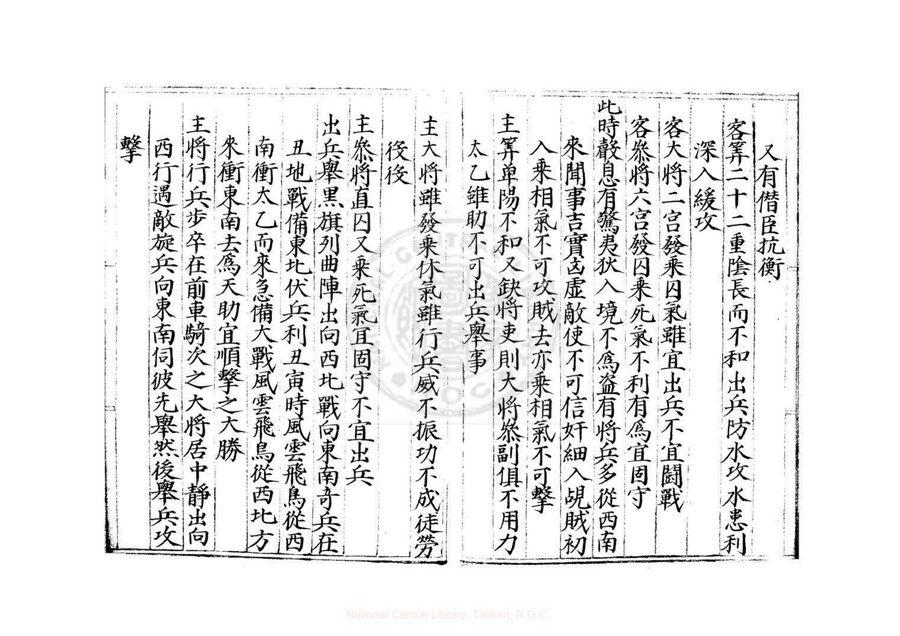 又有僣臣抗衡
客筭二十二重陰長而不和出兵防水攻水患利
深入緩攻
客大將二宮發乗囚氣雖宜出兵不宜鬪戰
客叅將六宮發囚乗死氣不利有爲宜固守
此時聲息有驚夷狄入境不爲盗有將兵多從西南
來聞事吉實凶虚敵使不可信奸細入覘賊初
入乗相氣不可攻賊去亦乗相氣不可擊
主筭单陽不和又缺將吏則大將叅副俱不用力
太乙雖助不可出兵舉事
主大將雖發乗休氣雖行兵威不振功不成徒勞
後後
主叅將直囚又乗死氣宜固守不宜出兵
出兵舉黑旗列曲陣出向西北戰向東南竒兵在
丑地戰備東北伏兵利丑寅時風雲飛鳥從西
南衝太乙而來急備大戰風雲飛鳥從西北方
來衝東南去爲天助宜順擊之大勝
主將行兵步卒在前車騎次之大將居中靜出向
西行遇敵旋兵向東南伺彼先舉然後舉兵攻
擊
National Central Library, Taiwan, R.O.C.